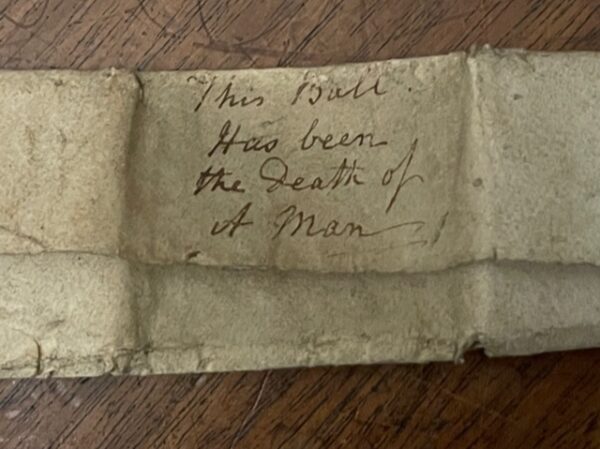 This Ball.
Has been
the Death of
A Man